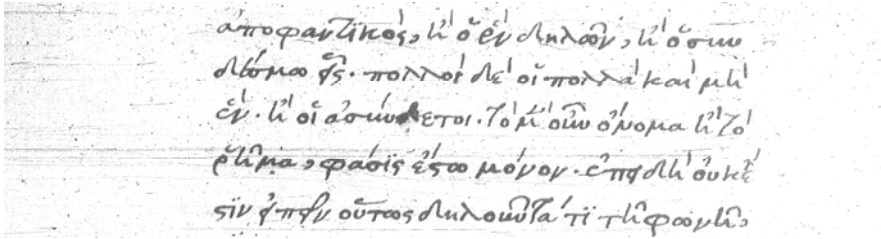 ἀποφαντικὸς, ἢ ὁ ἓν δηλῶν, ἢ ὁ συν
δέσμω εἷς· πολλοὶ δὲ οἱ πολλὰ καὶ μὴ
ἕν· ἢ οἱ ἀσύνδετοι· τὸ μὲν οὖν ὄνομα ἢ τὸ
ῥῆμα, φάσις ἔστω μόνον· ἐπειδὴ οὐκ ἔ
στιν εἰπεῖν οὕτως δηλοῦντα τὶ τῆ φωνῆ,